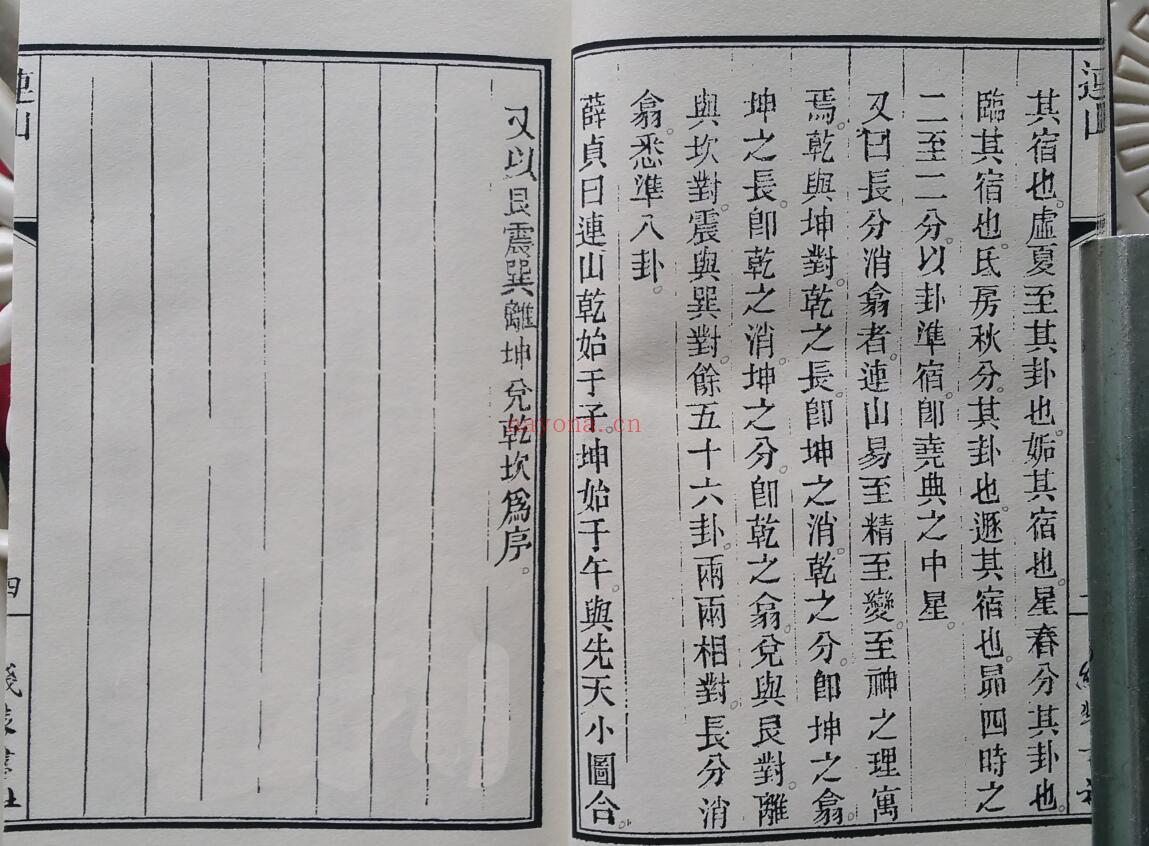 連山
其宿也。虛夏至其卦也。姤其宿也。星春分其卦也。
臨其宿也。氐房秋分。其卦也。遯其宿也。昴四時之
二至二分。以卦準宿。卽堯典之中星。
又曰長分消翕者。連山易至精至變。至神之理寓
焉。乾與坤對。乾之長。卽坤之消。乾之分。卽坤之翕。
坤之長。卽乾之消。坤之分。卽乾之翕。兌與艮對。離
與坎對。震與巽對。餘五十六卦。兩兩相對。長分消
翕。悉準八卦。
薛貞曰連山乾始于子。坤始于午。與先天小圖合。
又以艮震巽離坤兌乾坎爲序。
連山
四
nayona.cn